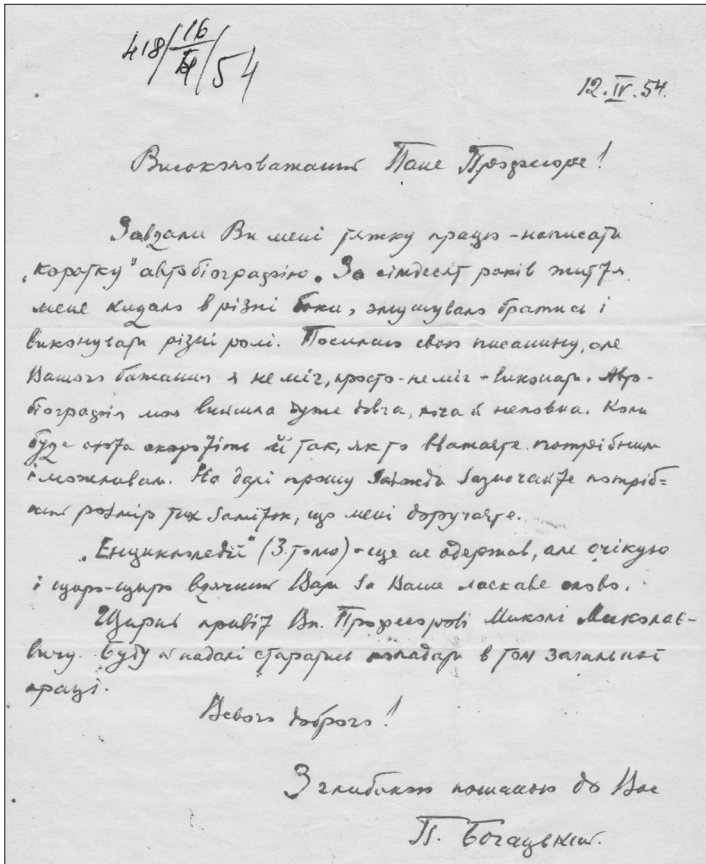 418/16/IV/54
12.IV.54.
Високоповажаний Пане Професоре!
Завдали Ви мені тяжку працю - написати
„коротку" автобіографію. За сімдесят років життя
мене кидало в різні боки, змушувало братись і
виконувати різні ролі. Посилаю свою писанину, але
Вашого бажання я не міг, просто-не міг - виконати. Авто-
біографія моя вийшла дуже довга, хоча й неповна. Коли
буде охота скоротіть її так, як то вважаєте потрібним
і можливим. На далі прошу завжди зазначайте потріб=
ний розмір тих заміток, що мені доручаєте.
„Енциклопедії" (3. тому) - ще не одержав, але очікую
і щиро-щиро вдячний Вам за Ваше ласкаве слово.
Щирий привіт Вп. Професорові Миколі Миколає-
вичу. Буду й надалі старатись попадати в тон загальної
праці.
Всього доброго!
З глибокою пошаною до Вас
П. Богацький.